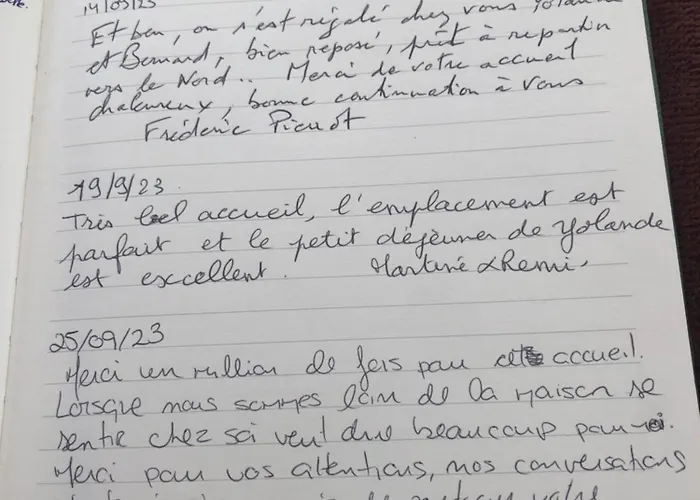 14/09/23
Et ben, on s'est régalé chez vous Yolande
et Bernard, bien reposé, prêt à repartir
vers le Nord.. Merci de votre accueil
chaleureux, bonne continuation à vous
Fréderic
19/9/23
Très bel accueil, l'emplacement est
parfait et le petit déjeuner de Yolande
est excellent. Martine & Remi.
25/09/23
Merci un million de fois pour cette accueil.
Lorsque nous sommes loin de la maison se
sentir chez soi veut dire beaucoup pour
Merci pour vos attentions, nos conversations